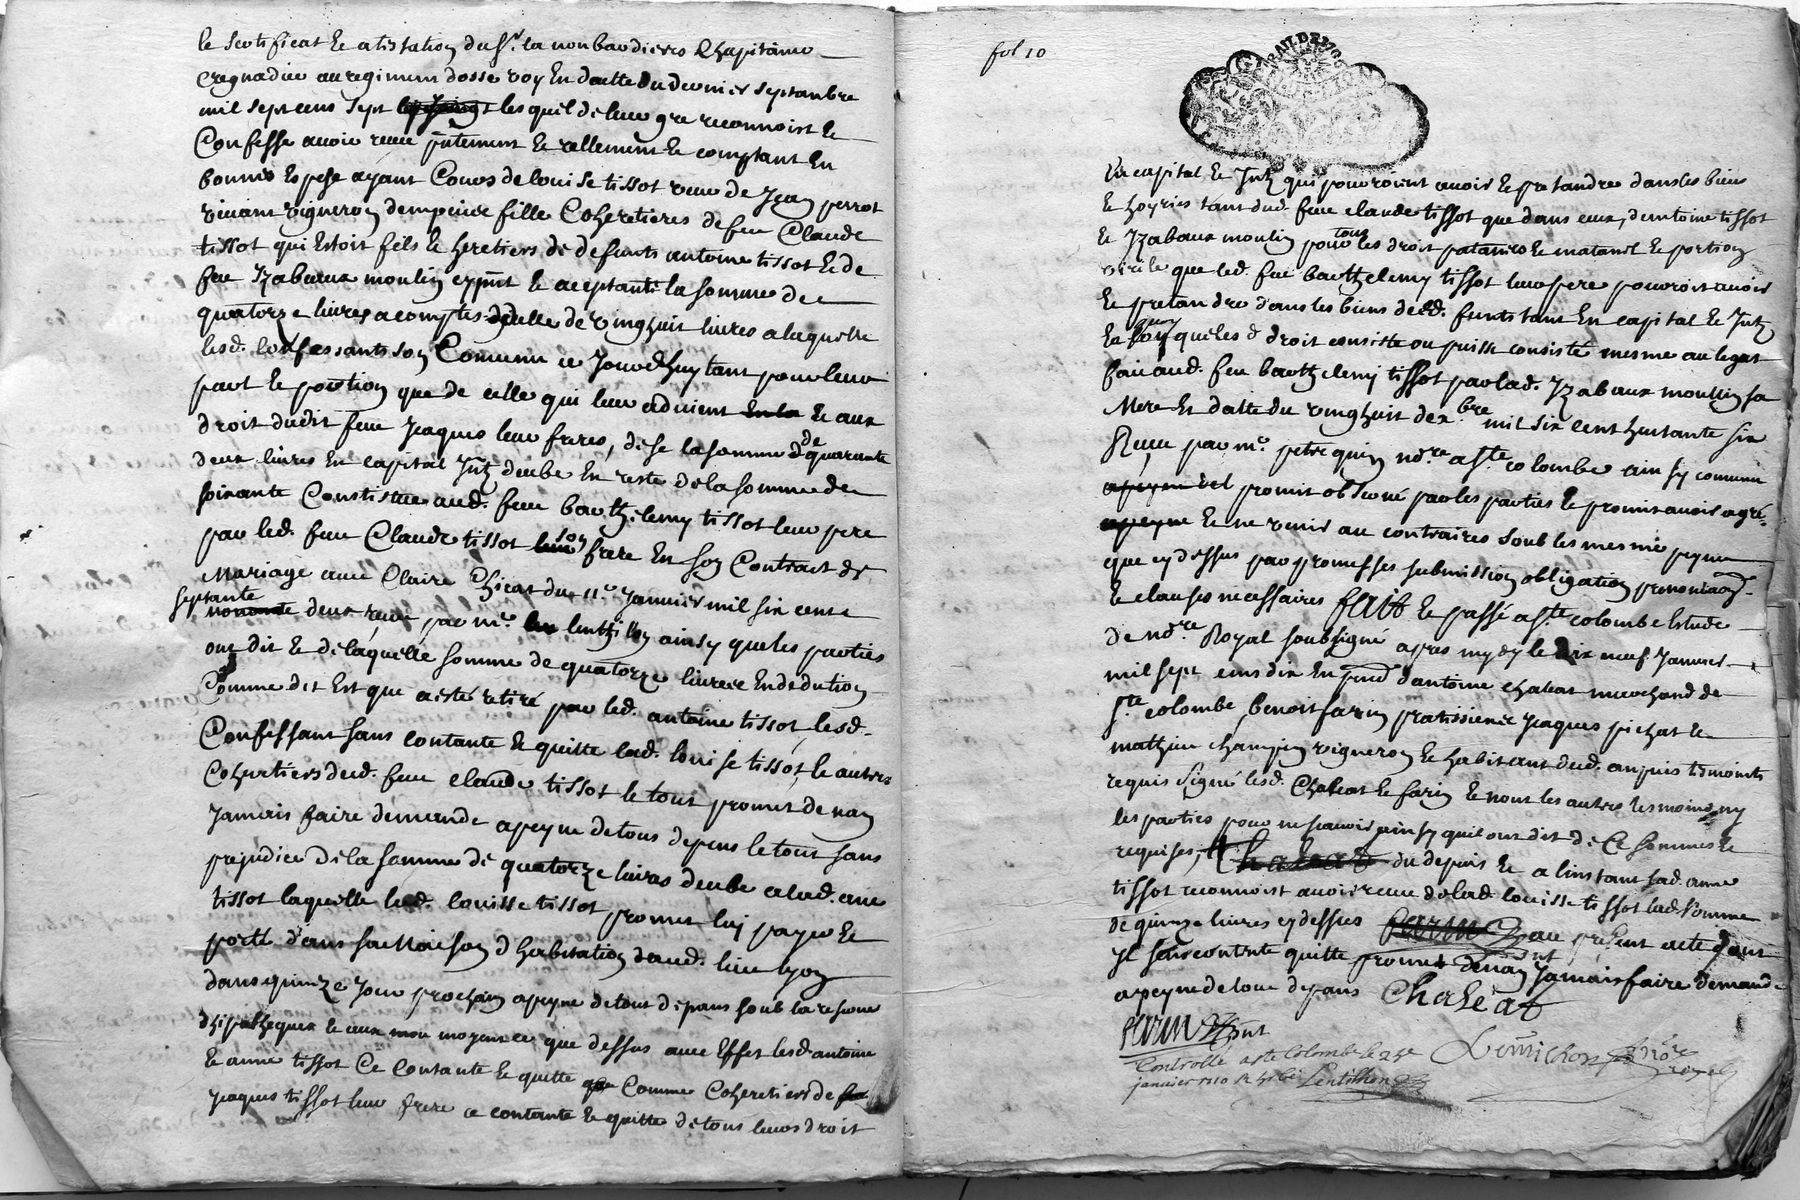 le sertificat & atistation du Sr. la nonbaudieres Chapitaine
cregnadier au regiment dosse roy En datte du dernier septanbre
mil sept cens sept lesquel de leur gre reconnoist &
Confesse avoir receu pntement & rellement & comptant En
bonnes Espese ayant Cours de louise tissot veuve de Jean perrot
vivant vigneron dempuice fille Coheretieres de feu Claude
tissot qui Estoit fils & heretiers de defunts antoine tissot & de
feu Yzabeaux moulin cy pnt & aceptante la somme de
quatorze livres a comptes de celle de vinghuit livres a laquelle
lesd. Confessants son Convenu ce Jourdhuy tant pour leur
part & portion que de celle qui leur advient & aux
droit dudit feu Jaques leur freres, dise la somme de quarante
deux livres En capital Intz deube En reste de la somme de
soixante Constistuée aud. feu barthelemy tissot leur pere
par led. feu Claude tissot son frere En son Contract de
Mariage avec Claire Chicat du 11e Janvier mil six cens
septante deux receu par me. lentillon ainsy que les parties
ont dit & de laquelle somme de quatorze livres En dedution
Comme dit Est que a esté retiré par led. antoine tissot lesd.
Confessant sans contante & quitte lad. louise tissot, & autres
Coheretiers dud. feu claude tissot le tout promet de nan
Jamais faire demande a peyne de tous depens le tout sans
prejudice de la somme de quatorze livres deube a lad. anne
tissot laquelle lad. louisse tissot promet luy payer &
porté dans sa Maison d habitation aud. lieu
dans quinze Jour prochain a peyne de tout depans soub la
dhipotheques & aux moyens ce que dessus avec Effet lesd antoine
& anne tissot Ce Contante & quitte Comme Coheretiers de
Jaques tissot leur frere ce contante & quitte de tous leurs droit
fol 10
En capital & Intz qui pouroient avoir & pretandre dans les biens
& hoyries tant dud. feu claude tissot que dans ceux, dantoine tissot
& Yzabaux moulin pour tous les droit paternel & maternel & portion
virile que led. feu barthelemy tissot leur pere pouroit avoir
& pretandre dans les biens desd. funts tant En capital & Intz
& quoy queles d droit consiste ou puisse consisté mesme au legat
fait aud. feu barthelemy tissot par lad. Yzabaux moullin sa
Mere En datte du vinghuit dexbre mil six cent huitante six
Receu par me. petrequin ndre a Ste colombe ainsy comme
promit observé par les parties & promit avoir agré-
& ne venir au contraires soub les mesme peyne
que cy dessus par promesses submission obligation renontiaon
& clauses necessaires fait & passé a Ste colombe Estude
de ndre Royal soubsigné apres mydy le dix neuf Janvier
mil sept cens dix En pnce dantoine chaleat marchand de
Ste colombe, benoit farin pratissiene Jaques pichat &
mathieu champin vigneron & habitant dud. ampuis tesmoints
requis signé lesd. Chaleat & farin & nont les autres tesmoins ny
les parties pour ne scavoir ainsy quil ont dit de Ce sommes &
requises, du depuis & a linstant lad. anne
tissot reconnoist avoir receu de lad. louisse tissot lad. somme
de quinze livres cy dessus au present acte dont
Il sens contente quitte promet de nan Jamais faire demande
a peyne de tous depans Chaleat
farin pnt
Controllé a Ste Colombe le 23e Lentillon ndre royal
janvier 1710 Lentillon